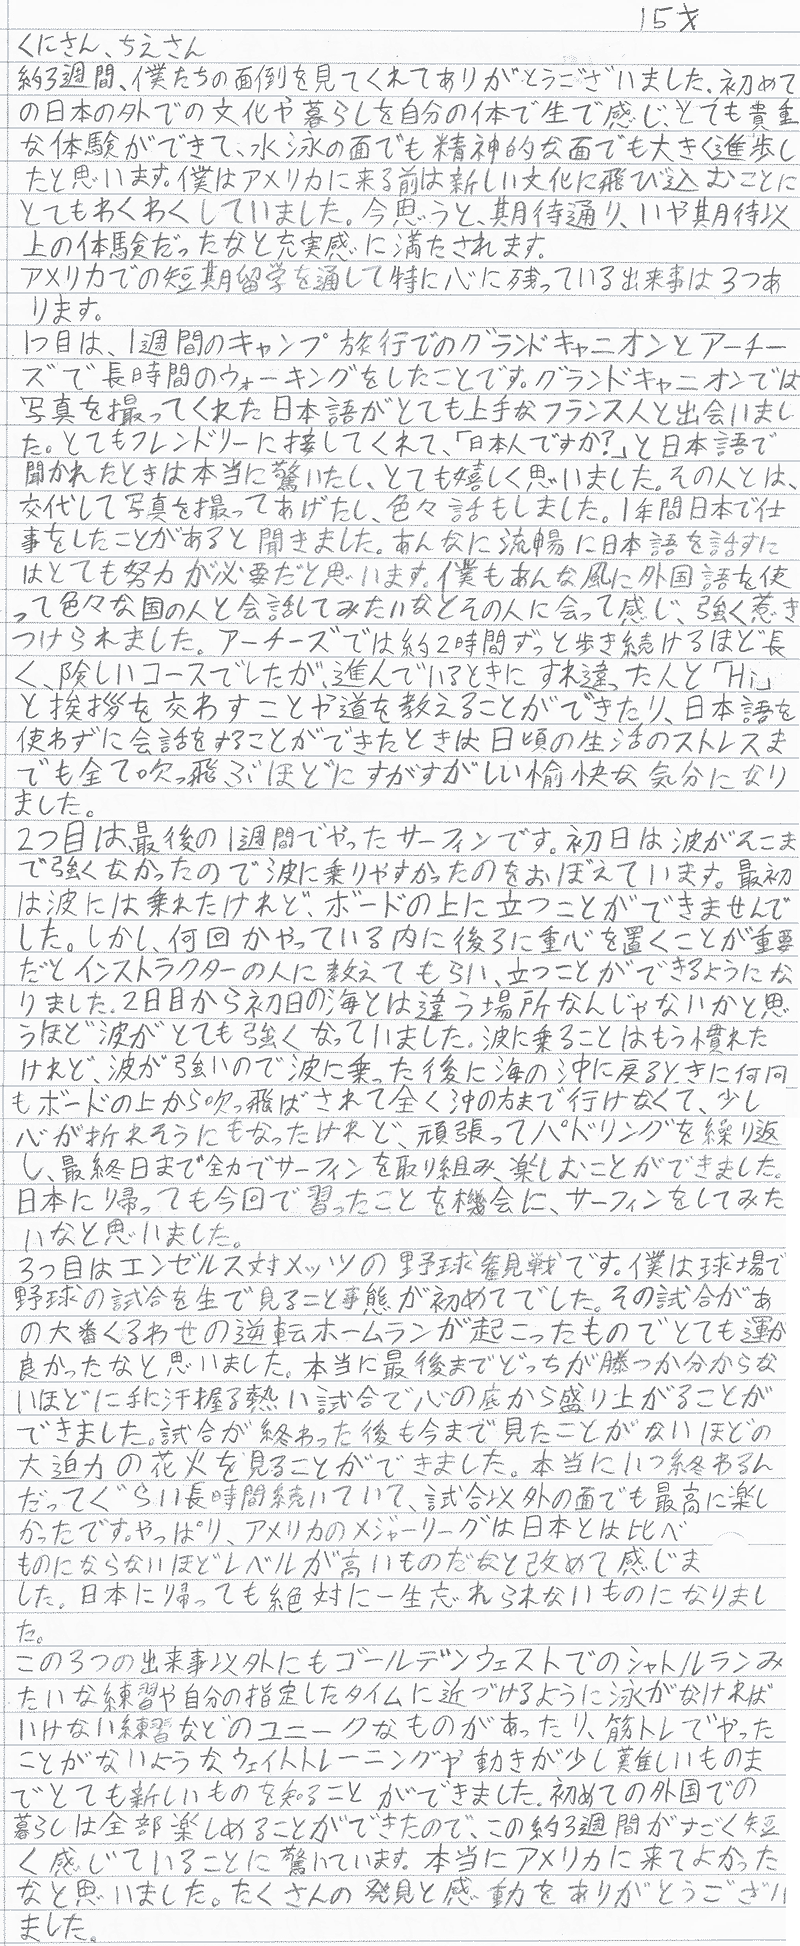 15才
くにさん、ちえさん
約3週間、僕たちの面倒を見てくれてありがとうございました。初めて
の日本の外での文化や暮らしを自分の体で生で感じ、とても貴重
な体験ができて、水泳の面でも精神的な面でも大きく進歩し
たと思います。僕はアメリカに来る前は新しい文化に飛び込むことに
とてもわくわくしていました。今思うと、期待通り、いや期待以
上の体験だったなと充実感に満たされます。
アメリカでの短期留学を通して特に心に残っている出来事は3つあ
ります。
1つ目は、1週間のキャンプ旅行でのグランドキャニオンとアーチー
ズで長時間のウォーキングをしたことです。グランドキャニオンでは
写真を撮ってくれた日本語がとても上手なフランス人と出会いまし
た。とてもフレンドリーに接してくれて、「日本人ですか?」と日本語で
聞かれたときは本当に驚いたし、とても嬉しく思いました。その人とは、
交代して写真を撮ってあげたし、色々話もしました。1年間日本で仕
事をしたことがあると聞きました。あんなに流暢に日本語を話すに
はとても努力が必要だと思います。僕もあんな風に外国語を使
って色々な国の人と会話してみたいなとその人に会って感じ、強く惹き
つけられました。アーチーズでは約2時間ずっと歩き続けるほど長
く、険しいコースでしたが、進んでいるときにすれ違った人と「Hi」
と挨拶を交わすことや道を教えることができたり、日本語を
使わずに会話をすることができたときは日頃の生活のストレスま
でも全て吹っ飛ぶほどにすがすがしい愉快な気分になり
ました。
2つ目は、最後の1週間でやったサーフィンです。初日は波がそこま
で強くなかったので波に乗りやすかったのをおぼえています。最初
は波には乗れたけれど、ボードの上に立つことができませんで
した。しかし、何回かやっている内に後ろに重心を置くことが重要
だとインストラクターの人に教えてもらい、立つことができるようにな
りました。2日目から初日の海とは違う場所なんじゃないかと思
うほど波がとても強くなっていました。波に乗ることはもう慣れた
けれど、波が強いので波に乗った後に海の沖に戻るときに何回
もボードの上から吹っ飛ばされて全く沖の方まで行けなくて、少し
心が折れそうにもなったけれど、頑張ってパドリングを繰り返
し、最終日まで全力でサーフィンを取り組み、楽しむことができました。
日本に帰っても今回で習ったことを機会に、サーフィンをしてみた
いなと思いました。
3つ目はエンゼルス対メッツの野球観戦です。僕は球場で
野球の試合を生で見ること事態が初めてでした。その試合があ
の大番くるわせの逆転ホームランが起こったものでとても運が
良かったなと思いました。本当に最後までどっちが勝つか分からな
いほどに手に汗握る熱い試合で心の底から盛り上がることが
できました。試合が終わった後も今まで見たことがないほどの
大迫力の花火を見ることができました。本当にいつ終わるん
だってぐらい長時間続いていて、試合以外の面でも最高に楽し
かったです。やっぱり、アメリカのメジャーリーグは日本とは比べ
ものにならないほどレベルが高いものだなと改めて感じま
した。日本に帰っても絶対に一生忘れられないものになりまし
た。
この3つの出来事以外にもゴールデンウェストでのシャトルランみ
たいな練習や自分の指定したタイムに近づけるように泳がなければ
いけない練習などのユニークなものがあったり、筋トレでやった
ことがないようなウェイトトレーニングや動きが少し難しいものま
でとても新しいものを知ることができました。初めての外国での
暮らしは全部楽しめることができたので、この約3週間がすごく短
く感じていることに驚いています。本当にアメリカに来てよかった
なと思いました。たくさんの発見と感動をありがとうござい
ました。